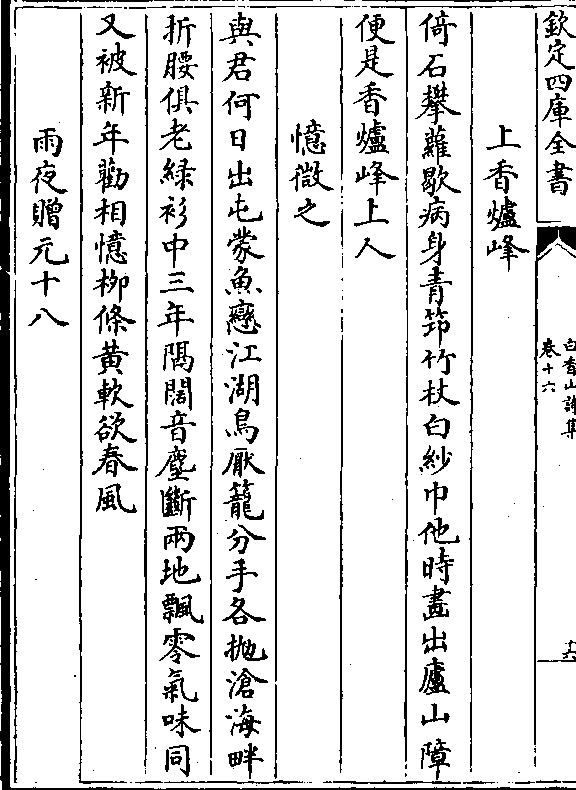 欽定四庫全書
白香山詩集
卷十六
十六
上香爐峰
倚石攀蘿歇病身青笻竹杖白紗巾他時畫出廬山障
便是香爐峰上人
憶微之
與君何日出屯蒙魚戀江湖鳥厭籠分手各抛滄海畔
折腰俱老緑衫中三年隔闊音塵斷兩地飄零氣味同
又被新年勸相憶柳條黄軟欲春風
雨夜贈元十八